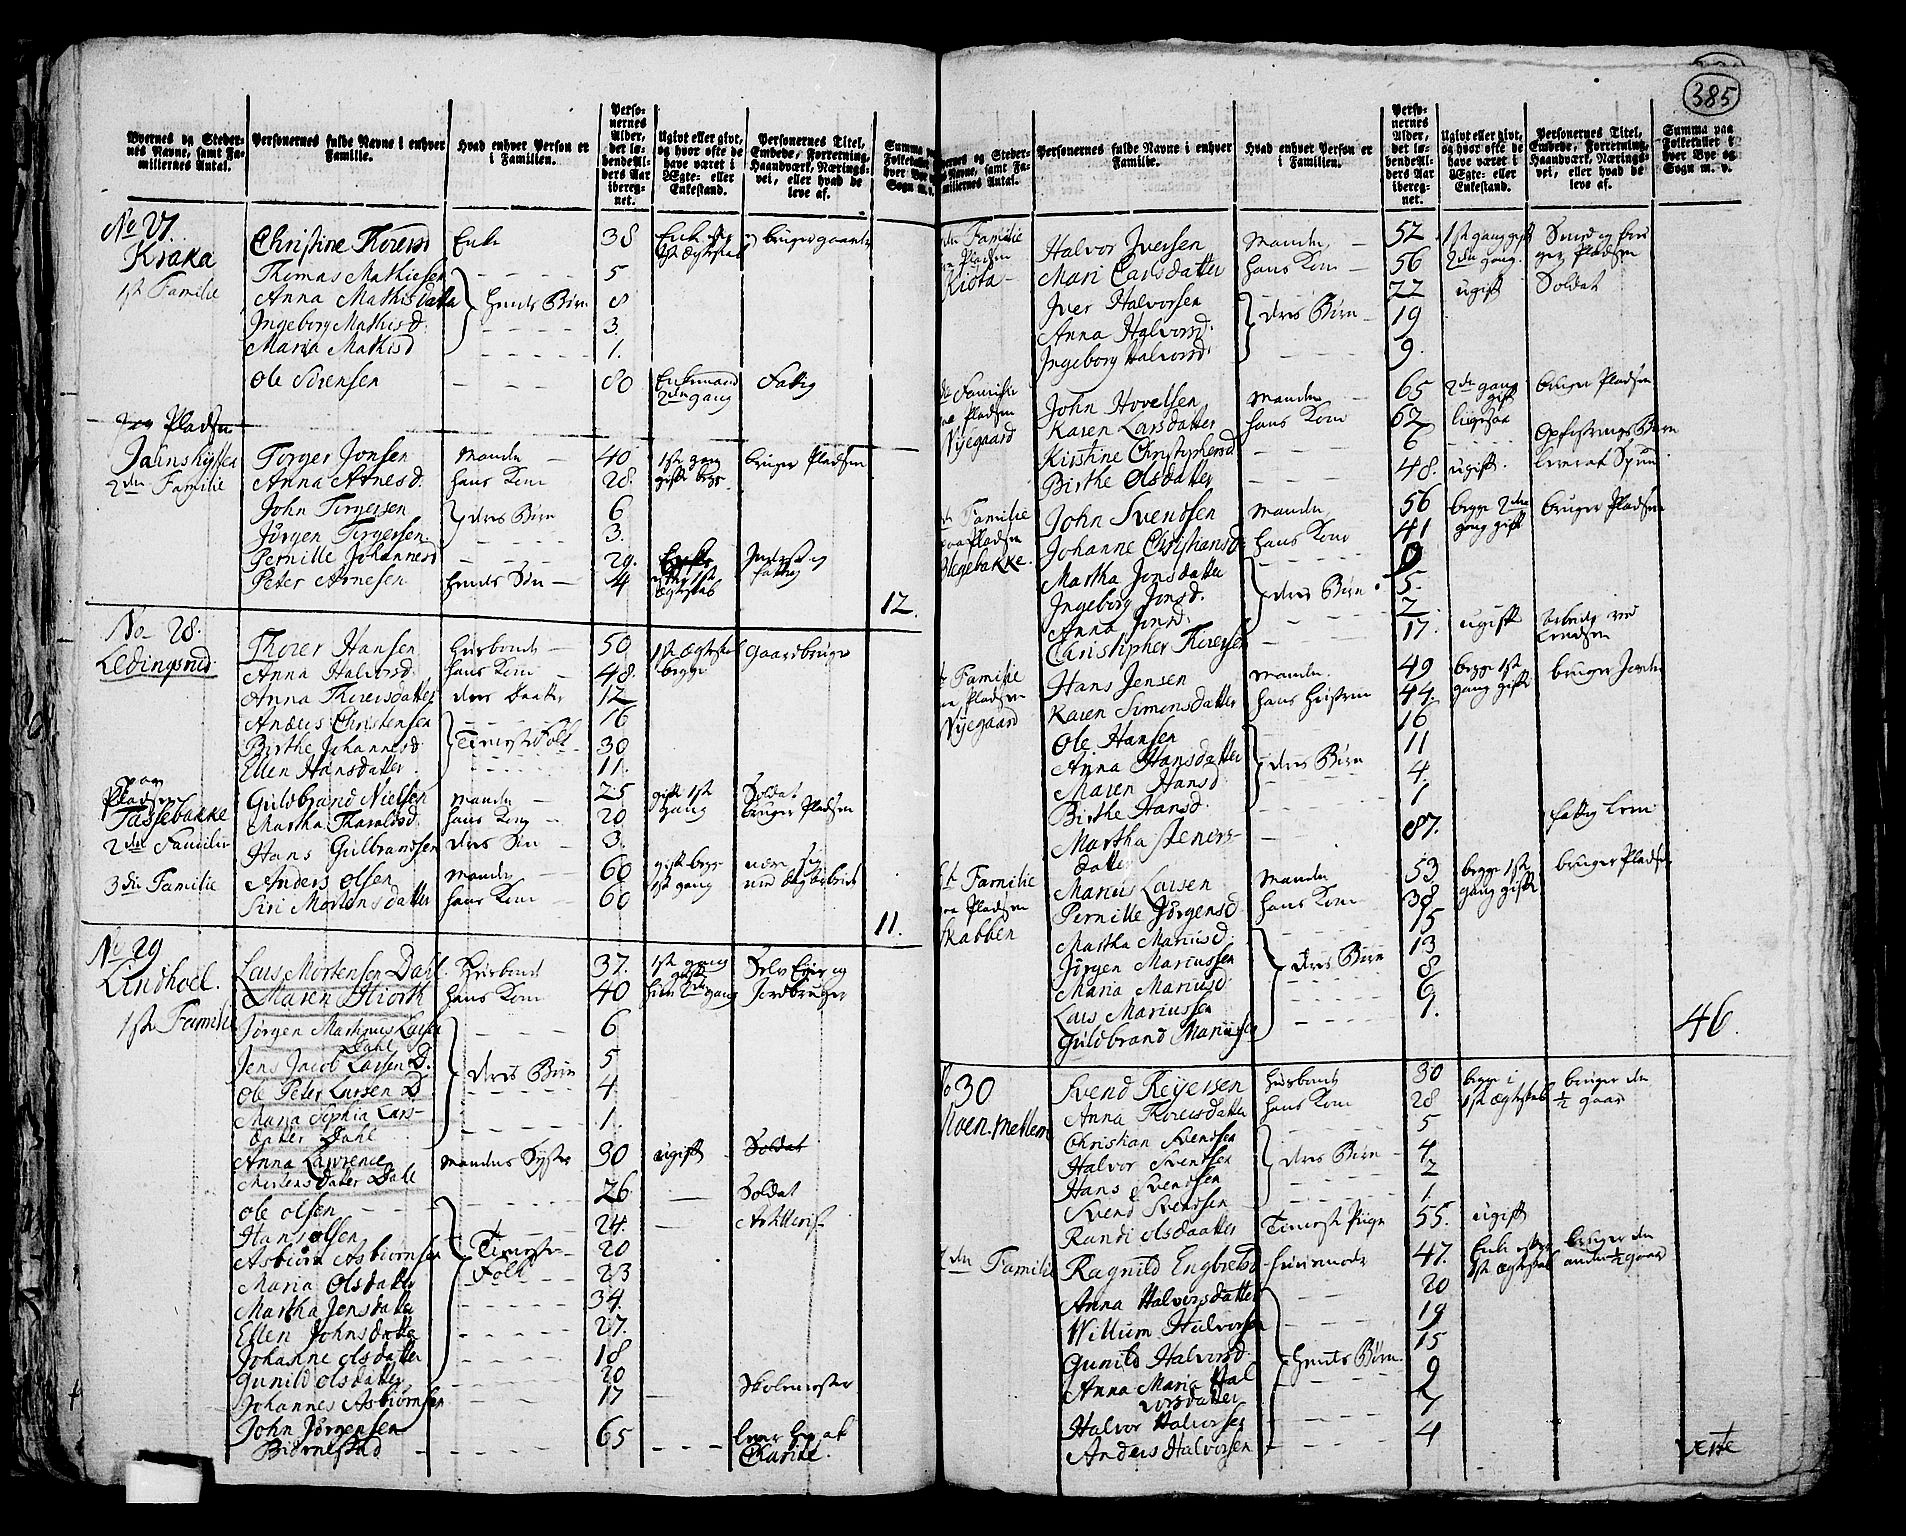 385
Byernes og Steder-
nes Navne, samt Fa-
miliernes Antal.
Personernes fulde Navne i enhver
Familie.
Hvad enhver Person er
i Familien.
Perso-
nernes
Alder,
der lø-
bende Al-
ders Aar
ibereg-
net.
Ugivt eller givt,
og hvor ofte de
have været i
Ægte- eller
Enkestand.
Personernes Titel,
Embede, Forretning,
Haandværk, Nærings-
vei, eller hvad de
leve af.
Summa paa
Folketallet i
hver Bye og
Sogn m. v.
No 27. Christine Thorersd Enke 38
Kraka
1ste Familie Thomas Mathiesen 5
Anna Mathisdatter hendes Børn 8
Ingeborg Mathisd. 3
Maria Mathisd 1.
Ole Sørensen 80 Enkemand Fattig
2den gang
paa Pladsen
Torger Jonsen Manden 40 1ste gang bruger Pladsen
2den Familie Anna Arnesd. hans Kone 28. gift begge
John Torgersen deres Børn 6
Jørgen Torgersen 3.
Pernille Johannesd 29.
Peter Arnesen hendes Søn 4
12.
No 28. Thorer Hansen Husbonde 50 1ste Ægteskab Gaardbruger
Ledingsrud. Anna Halvorsd. hans Kone 48. begge
Anna Thorersdatter deres Daatter 12
Anders Christensen 16
Birthe Johannesd. Tieneste Folk 30
Ellen Hansdatter 11.
paa
Pladsen Guldbrand Nielsen Manden 25 gift 1ste Soldat
Tassebakke Martha Tharaldsd. hans Kone 20 gang bruger Pladsen
2den Familie Hans Gulbrandsen deres Søn 3.
3die Familie Anders Olsen Manden 60 gift begge nærer sig
Siri Mortensdatter hans Kone 60 1ste gang
11.
No 29 Lars Mortensen Dahl Husbonde 37. 1ste gang Selv Eier og
Lindhoel. Maren Hiorth hans Kone 40 hun 2den gang Jordbruger
1ste Familie Jørgen Marthinus Larsen 6
Dahl
Jens Jacob Larsen D. 5
Ole Peter Larsen D. deres Børn 4
Maria Sophia Lars- 1.
datter Dahl
Anna Lawrence Mandens Syster 30 ugift Soldat
Mortensdatter Dahl
Ole Olsen 26 Soldat
Hans Olsen 24.
Asbiørn Asbiørnsen Tieneste- 20
Maria Olsdatter Folk 23
Martha Jensdatter 34.
Ellen Johnsdatter 27.
Johanne Olsdatter 18
Gunild Olsdatter 20
Johannes Asbiørnsen 17 Skolemester
John Jørgensen 65 lever af
Biørnestad
Byernes og Steder-
nes Navne, samt Fa-
miliernes Antal.
Personernes fulde Navne i enhver
Familie.
Hvad enhver Person er
i Familien.
Perso-
nernes
Alder,
der lø-
bende Al-
ders Aar
ibereg-
net.
Ugivt eller givt,
og hvor ofte de
have været i
Ægte- eller
Enkestand.
Personernes Titel,
Embede, Forretning,
Haandværk, Nærings-
vei, eller hvad de
leve af.
Summa paa
Folketallet i
hver Bye og
Sogn m. v.
Familie Halvor Iversen Manden 52. 1ste gang gift
Pladsen Mari Larsdatter hans Kone 56 2den gang. Pladsen
Iver Halvorsen 22 ugift Soldat
Anna Halvorsd. deres Børn 19
Ingeborg Halvorsd. 9.
Familie John Hovelsen Manden 65 2den gang bruger Pladsen
Pladsen gift
Nyegaard Karen Larsdatter hans Kone 62 ligesaa
Kirstine Christophersd 6 Opfostrings Barn
Birthe Olsdatter 48. ugift. lever af Spind
Familie John Svendsen Manden 56 begge 2den bruger Pladsen
paa Pladsen Johanne Christiansd. hans Kone 41 gang gift
Martha Jonsdatter 9
Ingeborg Jonsd. deres Børn 5.
Anna Jonsd. 2.
Christopher Thoresen 17. ugift
Familie Hans Jensen Manden. 49 begge 1ste bruger
Pladsen Karen Simonsdatter hans Hustrue 44. gang gift
Nyegaard Ole Hansen 16
Anna Hansdatter deres Børn 11
Maren Hansd. 4
Birthe Hansd. 1
Martha Steners- 87. fattig Lem
datter
Familie Marius Larsen Manden 53 begge 1ste bruger Pladsen
paa Pladsen Pernille Jørgensd. hans Kone 38 gang gift
Skabben Martha Mariusd. 15
Jørgen Mariussen deres Børn 13
Maria Mariusd. 8
Lars Mariussen 6
Guldbrand Mariussen 1.
46.
No 30 Svend Reyersen Husbonde 30 begge i bruger den
Anna Thorersdatter hans Kone 28 1ste Ægteskab ½ gaar
Christian Svendsen 5
Halvor Svendsen deres Børn 4
Hans Svendsen 2
Svend Svendsen 1
Randi Olsdaatter Tieneste Pige 55. ugift
2den Familie Ragnild Engbretsd. Huusmoder 47. Enke efter bruger den
1ste Ægteskab anden ½ gaar
Anna Halvorsdatter 20
Willum Halvorsen 19
Gunild Halvorsd. hendes Børn. 15
Anna Maria Hal- 9
vorsdatter
Halvor Halvorsen 7
Anders Halvorsen 4
Verte